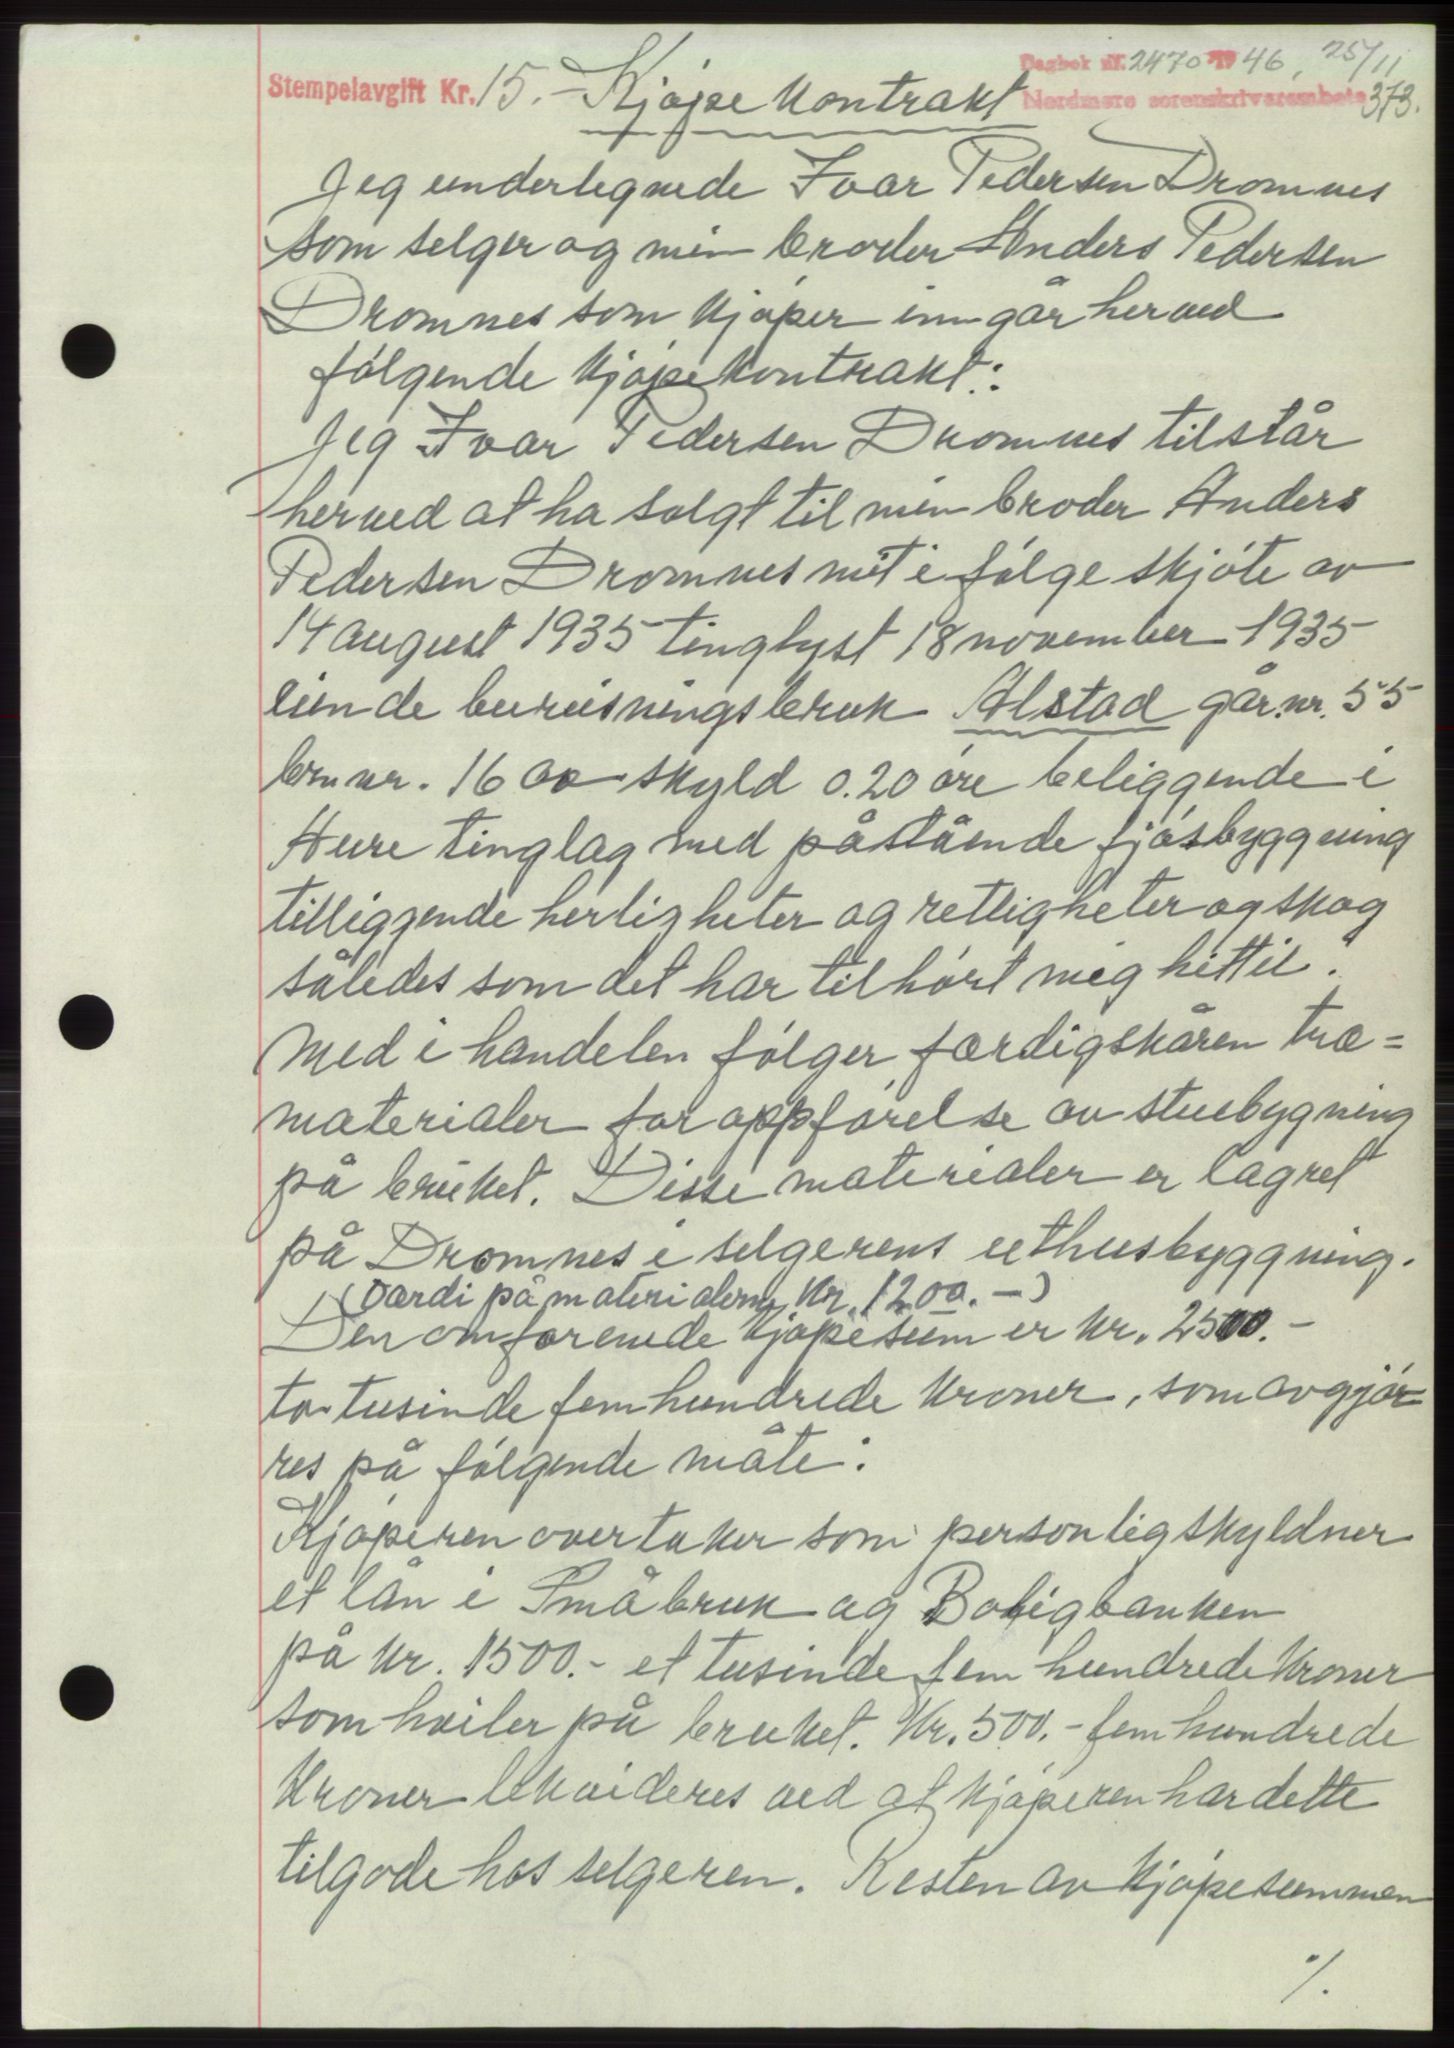 Stempelavgift Kr. 15.- Kjøpekontrakt
Dagbok nr. 2470 1946, 25/11
Nordmøre sorenskriverembete 373.
Jeg underlegnede Ivar Pedersen Dromnes
som selger og min broder Anders Pedersen
Dromnes som kjøper inngår herved
følgende kjøpekontrakt:
Jeg Ivar Pedersen Dromnes tilstår
herved at ha solgt til min broder Anders
Pedersen Dromnes mit i følge skjøte av
14 august 1935 tinglyst 18 november 1935
eiende bureisningsbruk Alstad går.nr. 55
br.nr. 16 av skyld 0.20 øre beliggende i
Aure tinglag med påstående fjøsbyggning
tilliggende herligheter og rettigheter og skog
således som det har tilhørt meg hittil.
Med i handelen følger færdigskåren træ=
materialer for oppførelse av stuebygning
på bruket. Disse materialer er lagret
på Dromnes i selgerens uthusbyggning.
(Værdi på materialerne Kr. 1200.-)
Den omforenede kjøpesum er kr. 2500.-
to tusinde femhundrede kroner, som avgjør=
res på følgende måte:
Kjøperen overtaker som personligskyldner
et lån i Småbruk og Boligbanken
på kr. 1500.- et tusinde fem hundrede kroner
som hviler på bruket. Kr. 500.- fem hundrede
kroner lekvideres ved at kjøperen har dette
tilgode hos selgeren. Resten av kjøpesummen
%.